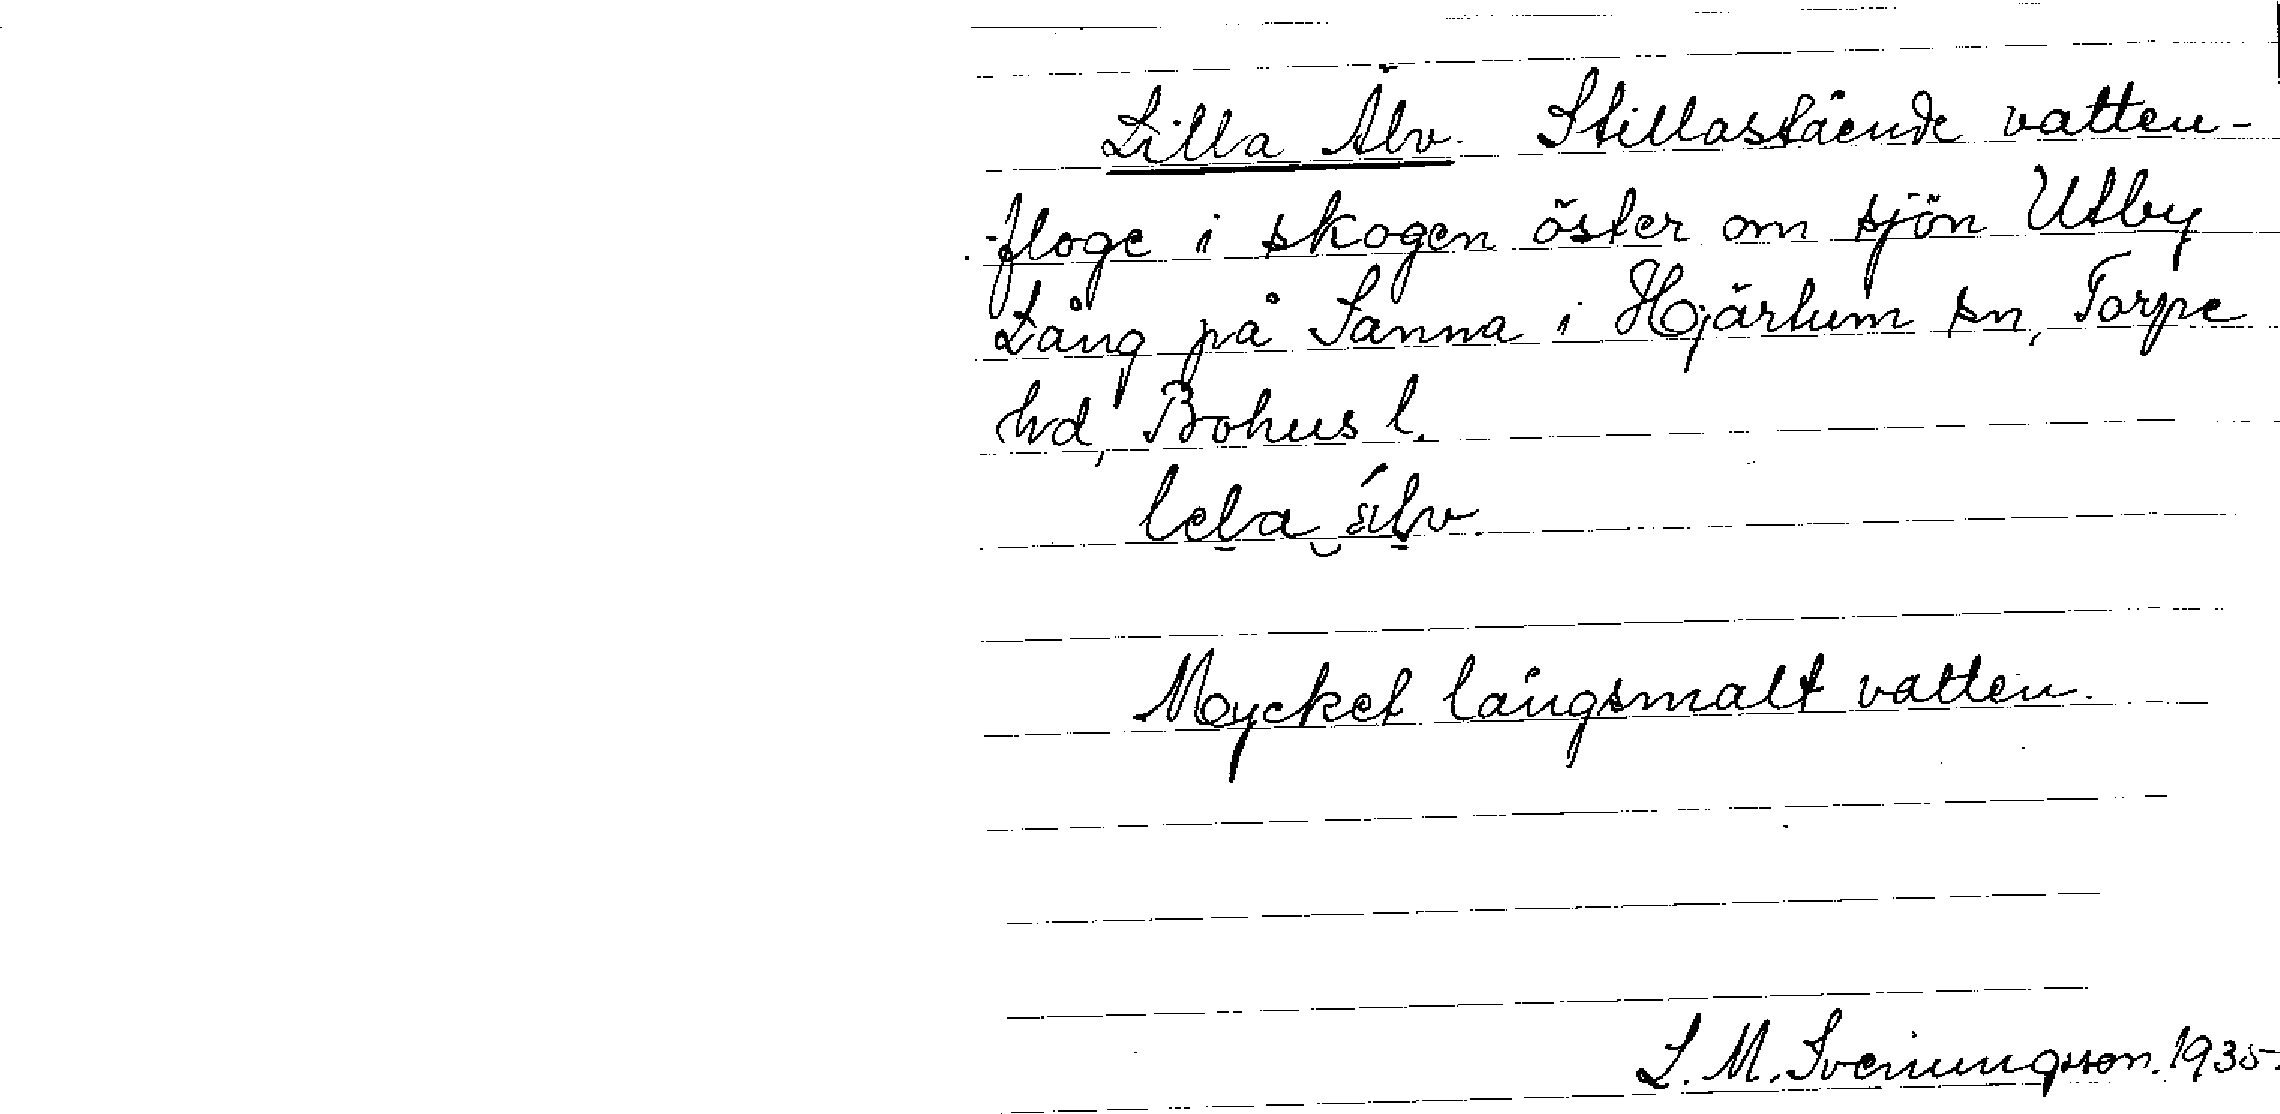 Lilla Älv. Stillastående vatten-
floge i skogen öster om sjön Utby
Lång på Sanna i Hjärtum sn, Torpe
hd, Bohus l.
lela älv.
Mycket långsmalt vatten.
L. M. Sveningsson. 1935.